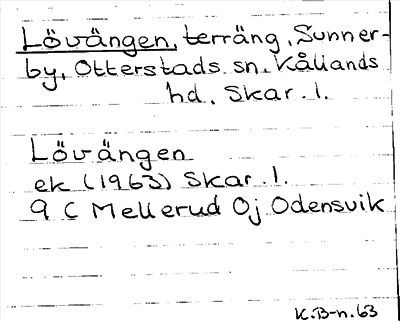 Lövängen, terräng, Sunner-
by, Otterstads sn. Kållands
hd, Skar. l.
Lövängen
ek (1963) Skar. l.
9 C Mellerud Oj Odensvik
K.B-n.63